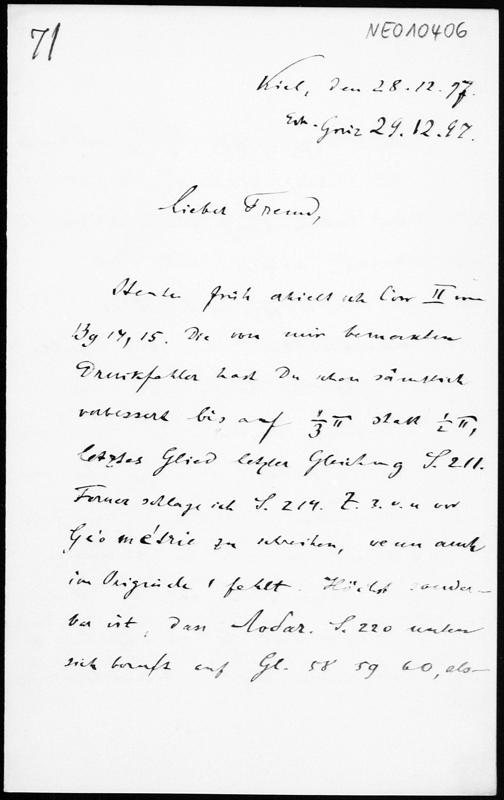 71
NEO10406
Kiel, den 28.12.97.
Erh. Goriz 29.12.97.
Lieber Freund,
Heute früh erhielt ich Corr II von
Bg 14, 15. Die von mir bemerkten
Druckfehler hast Du schon sämtlich
verbessert bis auf π statt ½ π,
letztes Glied letzter Gleichung S. 211.
Ferner schlage ich S. 214. Z. 3. v. u vor
Géométrie zu schreiben, wenn auch
im Originale ' fehlt. Höchst sonder-
bar ist, dass S. 220 unten
sich beruft auf Gl. 58 59 60, als-